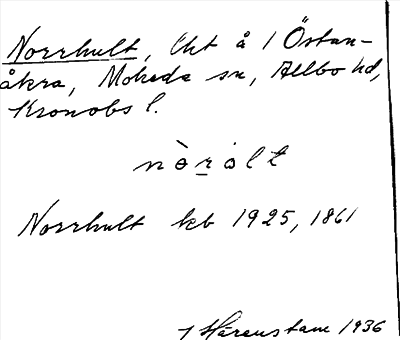 Norrhult, Uht å 1 Östan-
åkra, Moheda sn, Allbo hd,
Kronobs l.
nòròlt
Norrhult kb 1925, 1861
Härenstam 1936